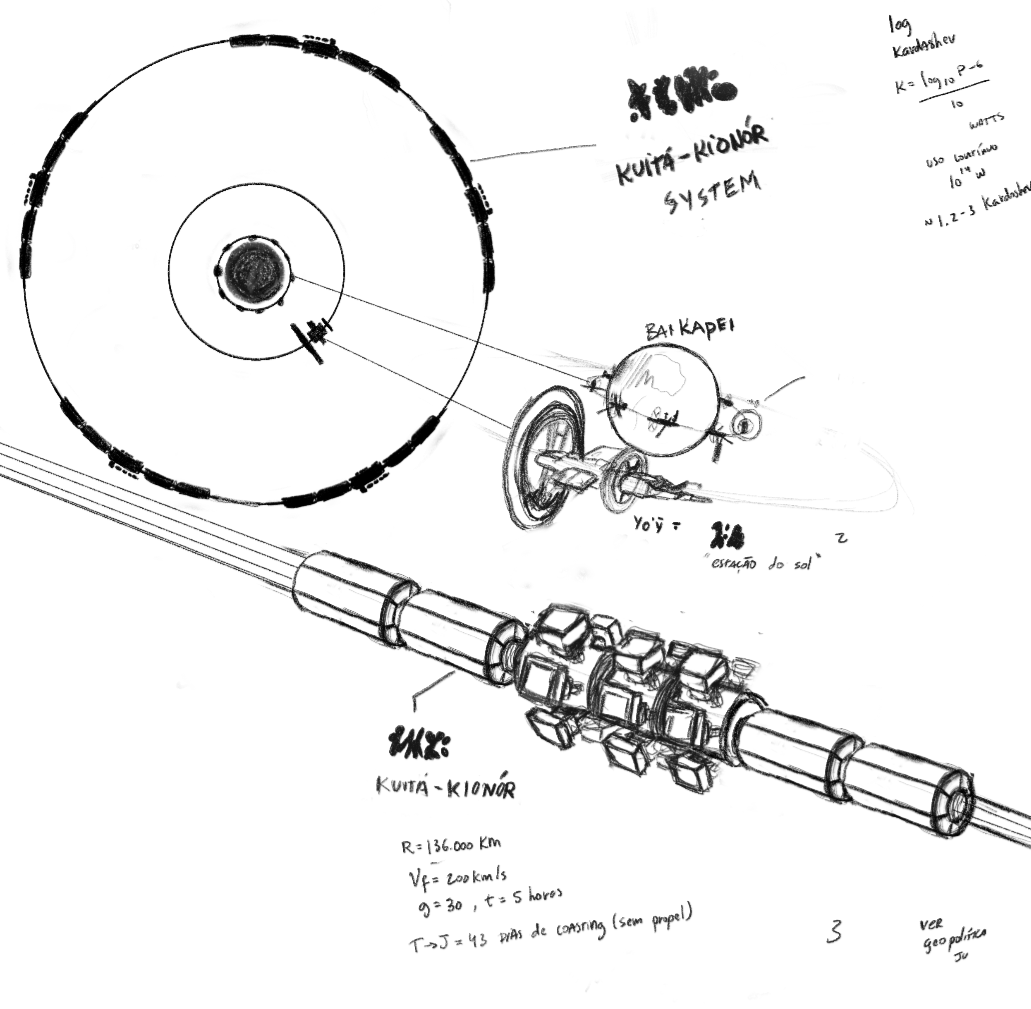 log
Kardashev
K = log₁₀ P - 6
10
WATTS
USO CONTÍNUO
10¹⁴ W
~ 1.2-3 Kardashev
KUITÁ-KIONÓR
SYSTEM
BAIKAPEI
Yo'ÿ =
"ESTAÇÃO do sol"
2
KUITÁ-KIONÓR
R = 136.000 Km
Vf = 200 km/s
g = 30, t = 5 horas
T → J = 43 DIAS de coasting (sem propel)
3
VER
geopolítica
JU